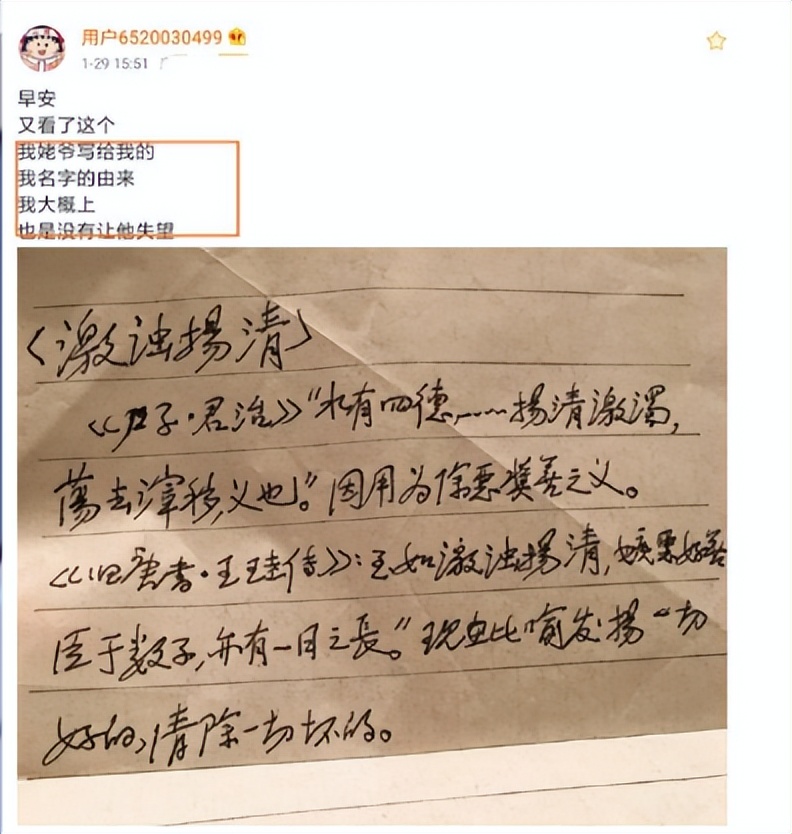 用户6520030499
1-29 15:51
早安
又看了这个
我姥爷写给我的
我名字的由来
我大概上
也是没有让他失望
〈激浊揚清〉
《尸子·君治》“水有四德,……揚清激濁,
蕩去滓秽,义也。”因用为除恶奖善之义。
《旧唐书·王珪传》:至如激浊揚清,嫉惡好善
臣于数子,亦有一日之長。”现也比喻发揚一切
好的,清除一切坏的。